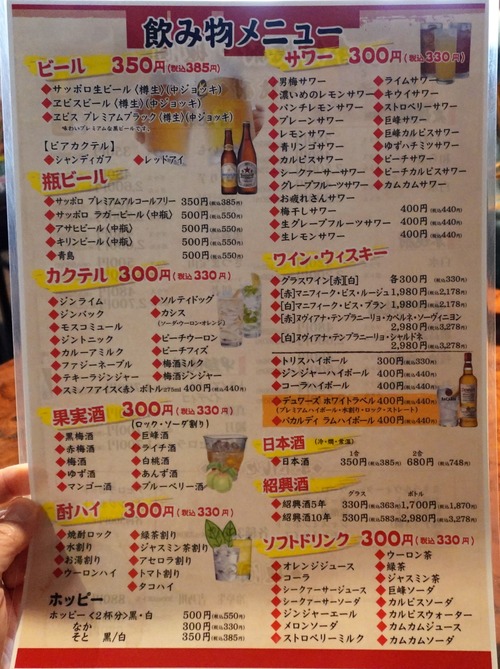 飲み物メニュー
ビール 350円(税込385円)
◆サッポロ生ビール〈樽生〉(中ジョッキ)
◆ヱビスビール〈樽生〉(中ジョッキ)
◆ヱビス プレミアムブラック〈樽生〉(中ジョッキ)
味わいプレミアムな黒ビールです。
【ビアカクテル】
◆シャンディガフ ◆レッドアイ
瓶ビール
◆サッポロ プレミアムアルコールフリー 350円(税込385円)
◆サッポロ ラガービール〈中瓶〉 500円(税込550円)
◆アサヒビール〈中瓶〉 500円(税込550円)
◆キリンビール〈中瓶〉 500円(税込550円)
◆青島 500円(税込550円)
カクテル 300円(税込330円)
◆ジンライム
◆ジンバック
◆モスコミュール
◆ジントニック
◆カルーアミルク
◆ファジーネーブル
◆テキーラジンジャー
◆ソルティドッグ
◆カシス
(ソーダ・ウーロン・オレンジ)
◆ピーチウーロン
◆ピーチフィズ
◆梅酒ミルク
◆梅酒ジンジャー
◆スミノフアイス〈赤〉 ボトル275ml 400円(税込440円)
果実酒 300円(税込330円)
(ロック・ソーダ割り)
◆黒梅酒
◆赤梅酒
◆梅酒
◆ゆず酒
◆マンゴー酒
◆巨峰酒
◆ライチ酒
◆白桃酒
◆あんず酒
◆ブルーベリー酒
酎ハイ 300円(税込330円)
◆焼酎ロック
◆水割り
◆お湯割り
◆ウーロンハイ
◆緑茶割り
◆ジャスミン茶割り
◆アセロラ割り
◆トマト割り
◆タコハイ
ホッピー
ホッピー〈2杯分〉黒・白 500円(税込550円)
なか 300円(税込330円)
そと 黒/白 350円(税込385円)
サワー 300円(税込330円)
◆男梅サワー
◆濃いめのレモンサワー
◆パンチレモンサワー
◆プレーンサワー
◆レモンサワー
◆青リンゴサワー
◆カルピスサワー
◆シークァーサーサワー
◆グレープフルーツサワー
◆お疲れさんサワー
◆ライムサワー
◆キウイサワー
◆ストロベリーサワー
◆巨峰サワー
◆巨峰カルピスサワー
◆ゆずハチミツサワー
◆ピーチサワー
◆ピーチカルピスサワー
◆カムカムサワー
◆梅干しサワー 400円(税込440円)
◆生グレープフルーツサワー 400円(税込440円)
◆生レモンサワー 400円(税込440円)
ワイン・ウィスキー
◆グラスワイン[赤][白] 各300円(税込330円)
◆[赤]マニフィーク・ビス・ルージュ 1,980円(税込2,178円)
◆[白]マニフィーク・ビス・ブラン 1,980円(税込2,178円)
◆[赤]ヌヴィアナ・テンプラニーリョ・カベルネ・ソーヴィニヨン
2,980円(税込3,278円)
◆[白]ヌヴィアナ・テンプラニーリョ・シャルドネ
2,980円(税込3,278円)
◆トリスハイボール 300円(税込330円)
◆ジンジャーハイボール 400円(税込440円)
◆コーラハイボール 400円(税込440円)
◆デュワーズ ホワイトラベル 400円(税込440円)
(プレミアムハイボール・水割り・ロック・ストレート)
◆バカルディ ラムハイボール 400円(税込440円)
日本酒 (冷・燗・常温)
1合 2合
◆日本酒 350円(税込385円) 680円(税込748円)
紹興酒
グラス ボトル
◆紹興酒5年 330円(税込363円) 1,700円(税込1,870円)
◆紹興酒10年 530円(税込583円) 2,980円(税込3,278円)
ソフトドリンク 300円(税込330円)
◆オレンジジュース
◆コーラ
◆シークァーサージュース
◆シークァーサーソーダ
◆ジンジャーエール
◆メロンソーダ
◆ストロベリーミルク
◆ウーロン茶
◆緑茶
◆ジャスミン茶
◆巨峰ソーダ
◆カルピスソーダ
◆カルピスウォーター
◆カムカムジュース
◆カムカムソーダ